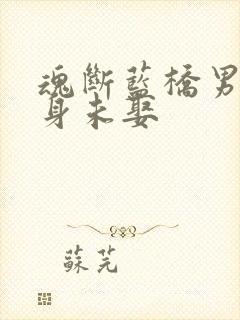 魂斷藍橋男
身未娶
蘇芫